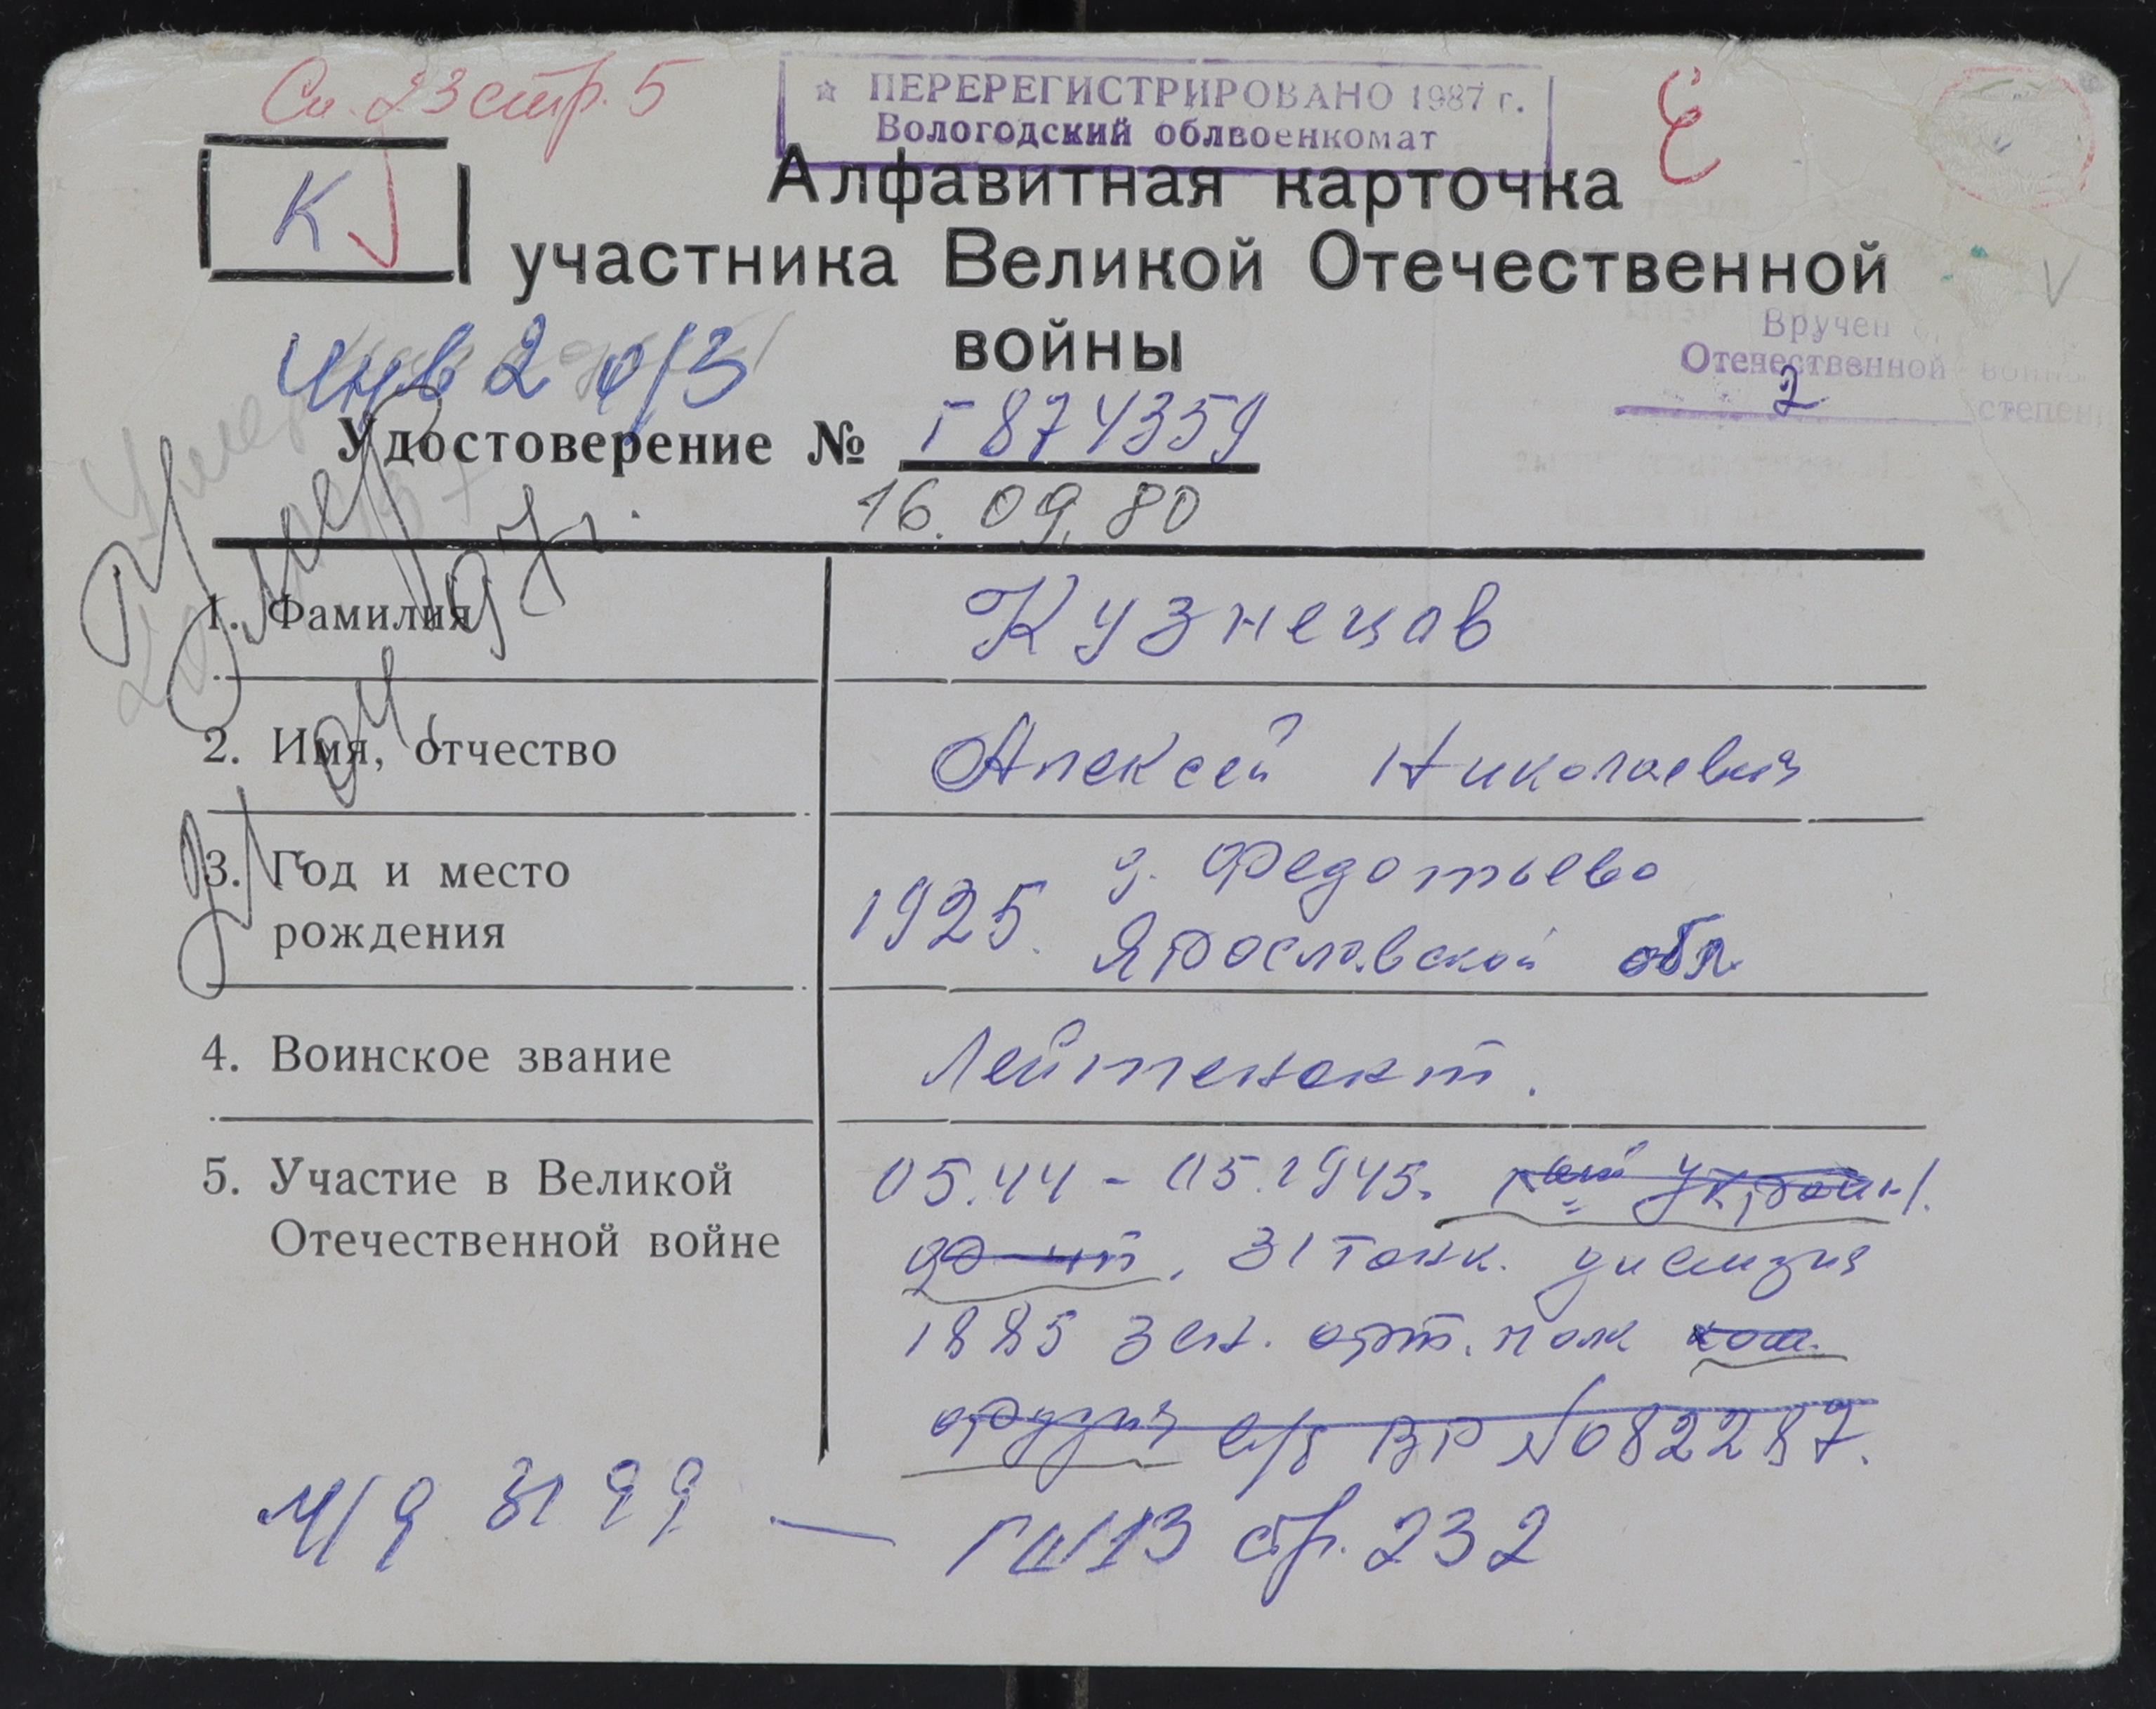 Сп. 23 стр. 5
☆ ПЕРЕРЕГИСТРИРОВАНО 1987 г.
Вологодский облвоенкомат
К
Алфавитная карточка
участника Великой Отечественной
войны
Инв 2 о/з
Вручен
Отечественной войны
2 степени
Удостоверение № Г 874359
16.09.80
Умер
97г.
1. Фамилия
Кузнецов
2. Имя, отчество
Алексей Николаевич
3. Год и место
рождения
1925. д. Федотьево
Ярославской обл.
4. Воинское звание
Лейтенант.
5. Участие в Великой
Отечественной войне
05.44 - 05.1945. 1ый Украин.
фр-нт, 31 танк. дивизия
1885 зен. арт. полк ком.
орудия с/в ВР №082287.
М/д 3199 — ГШ113 стр. 232